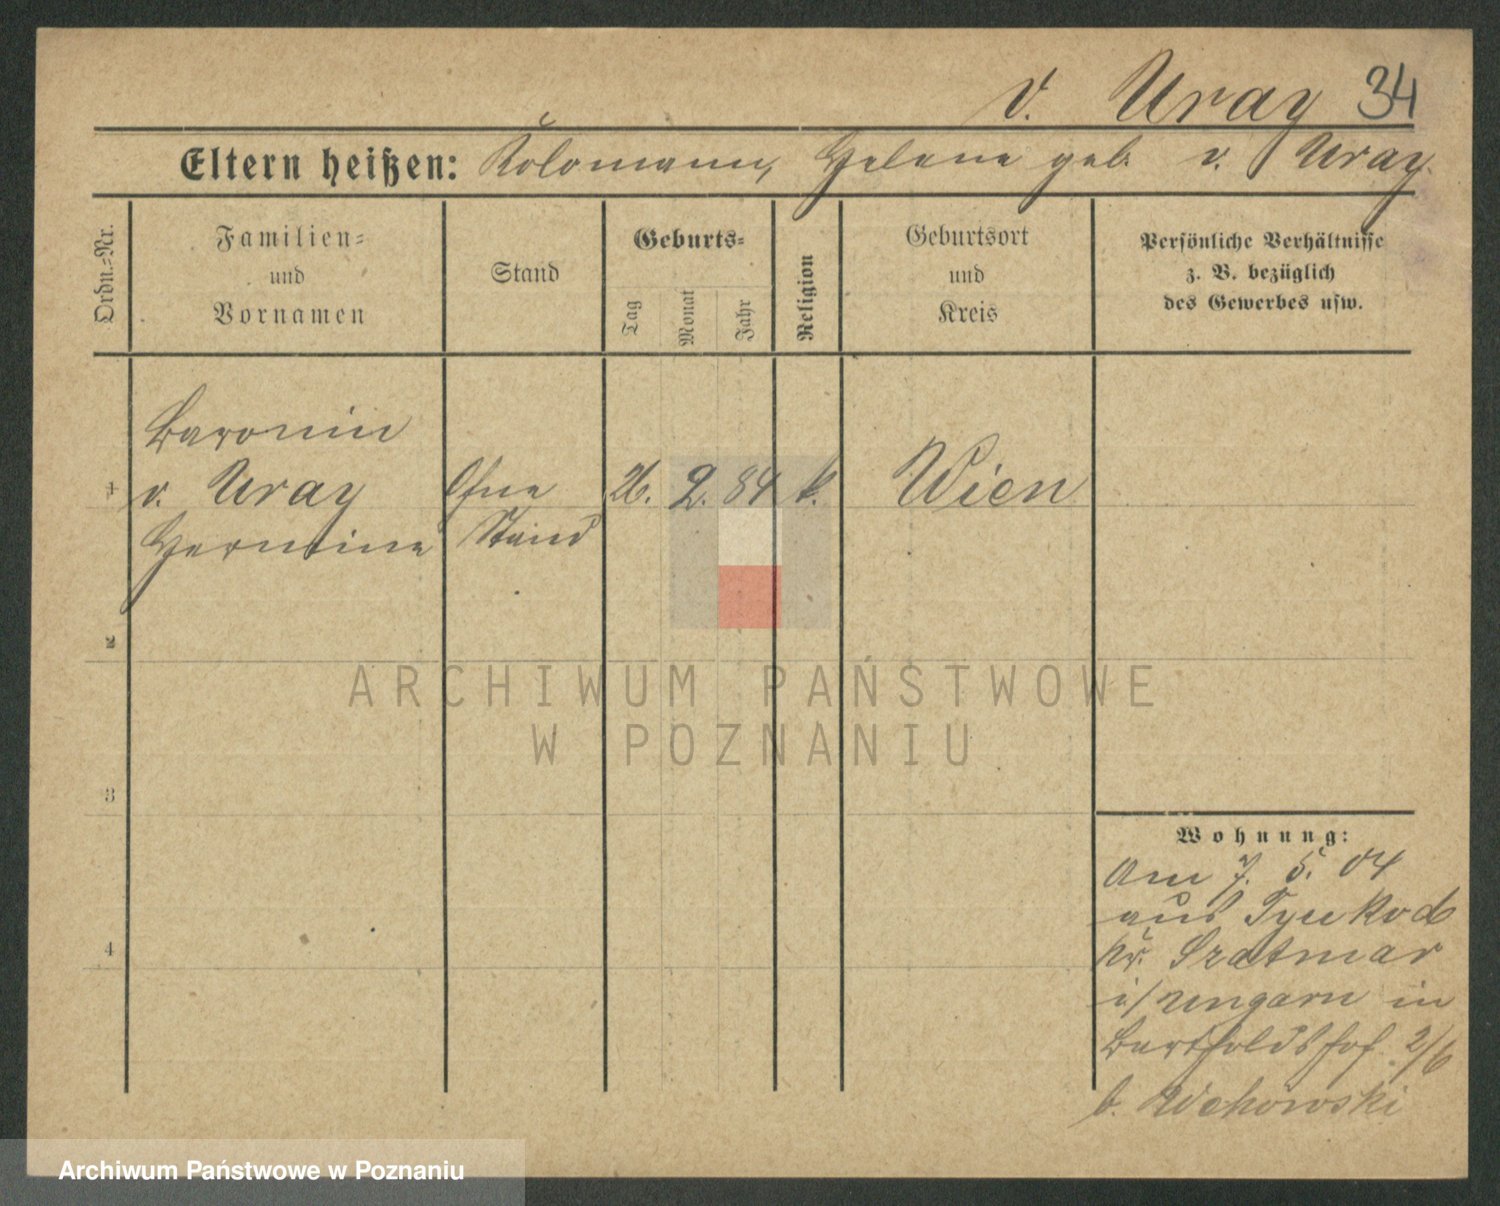 v. Uray 34
Eltern heißen: Kolomann, Helene geb. v. Uray.
Ordn.=Nr.
Familien=
und
Vornamen
Stand
Geburts=
Tag
Monat
Jahr
Religion
Geburtsort
und
Kreis
Persönliche Verhältnisse
z. B. bezüglich
des Gewerbes usw.
Baronin
1 v. Uray Ohne 26. 2. 84 k. Wien
Hermine Stand
2
ARCHIWUM PAŃSTWOWE
W POZNANIU
3
Wohnung:
Am 7. 5. 04
aus Tyukod
4
Kr. Szatmar
i/Ungarn in
Bartholdshof 2/6
b.
Archiwum Państwowe w Poznaniu